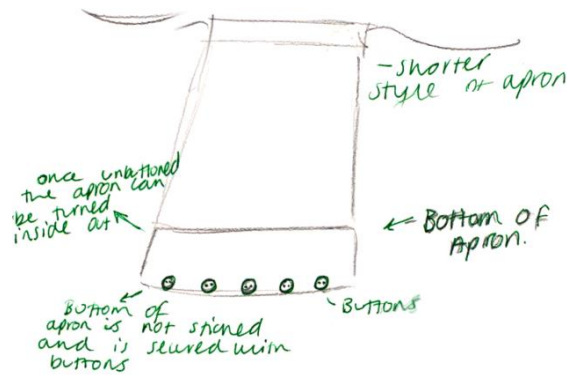 - shorter
style of apron
once unbuttoned
the apron can
be turned
inside out
Bottom of
Apron.
Buttons
Bottom of
apron is not stiched
and is secured with
buttons